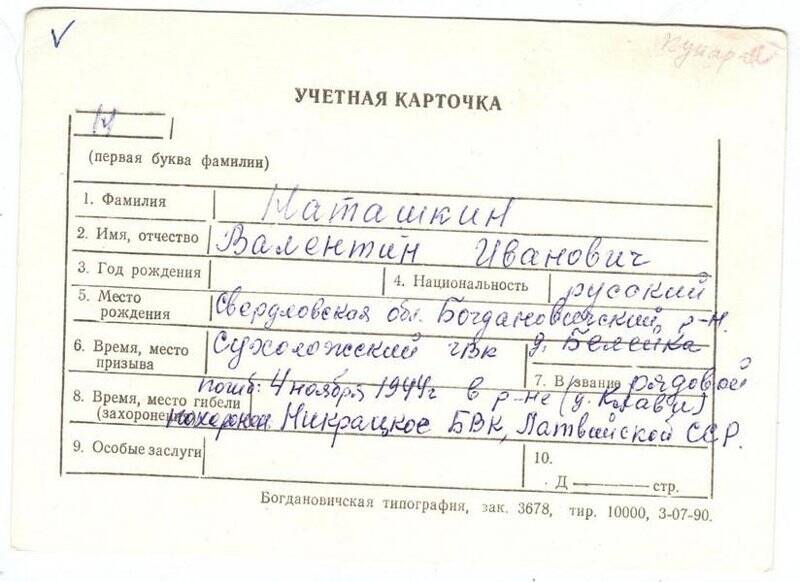 УЧЕТНАЯ КАРТОЧКА
Н
(первая буква фамилии)
1. Фамилия Наташкин
2. Имя, отчество Валентин Иванович
3. Год рождения 4. Национальность русский
5. Место рождения Свердловская обл. Богдановичский р-н.
д. Белейка
6. Время, место призыва Сухоложский ГВК
7. В/звание рядовой
8. Время, место гибели (захоронения) погиб: 4 ноября 1944г в р-не (д. )
похоронен Никрацкое БВК, Латвийской ССР.
9. Особые заслуги 10.
Д стр.
Богдановичская типография, зак. 3678, тир. 10000, 3-07-90.